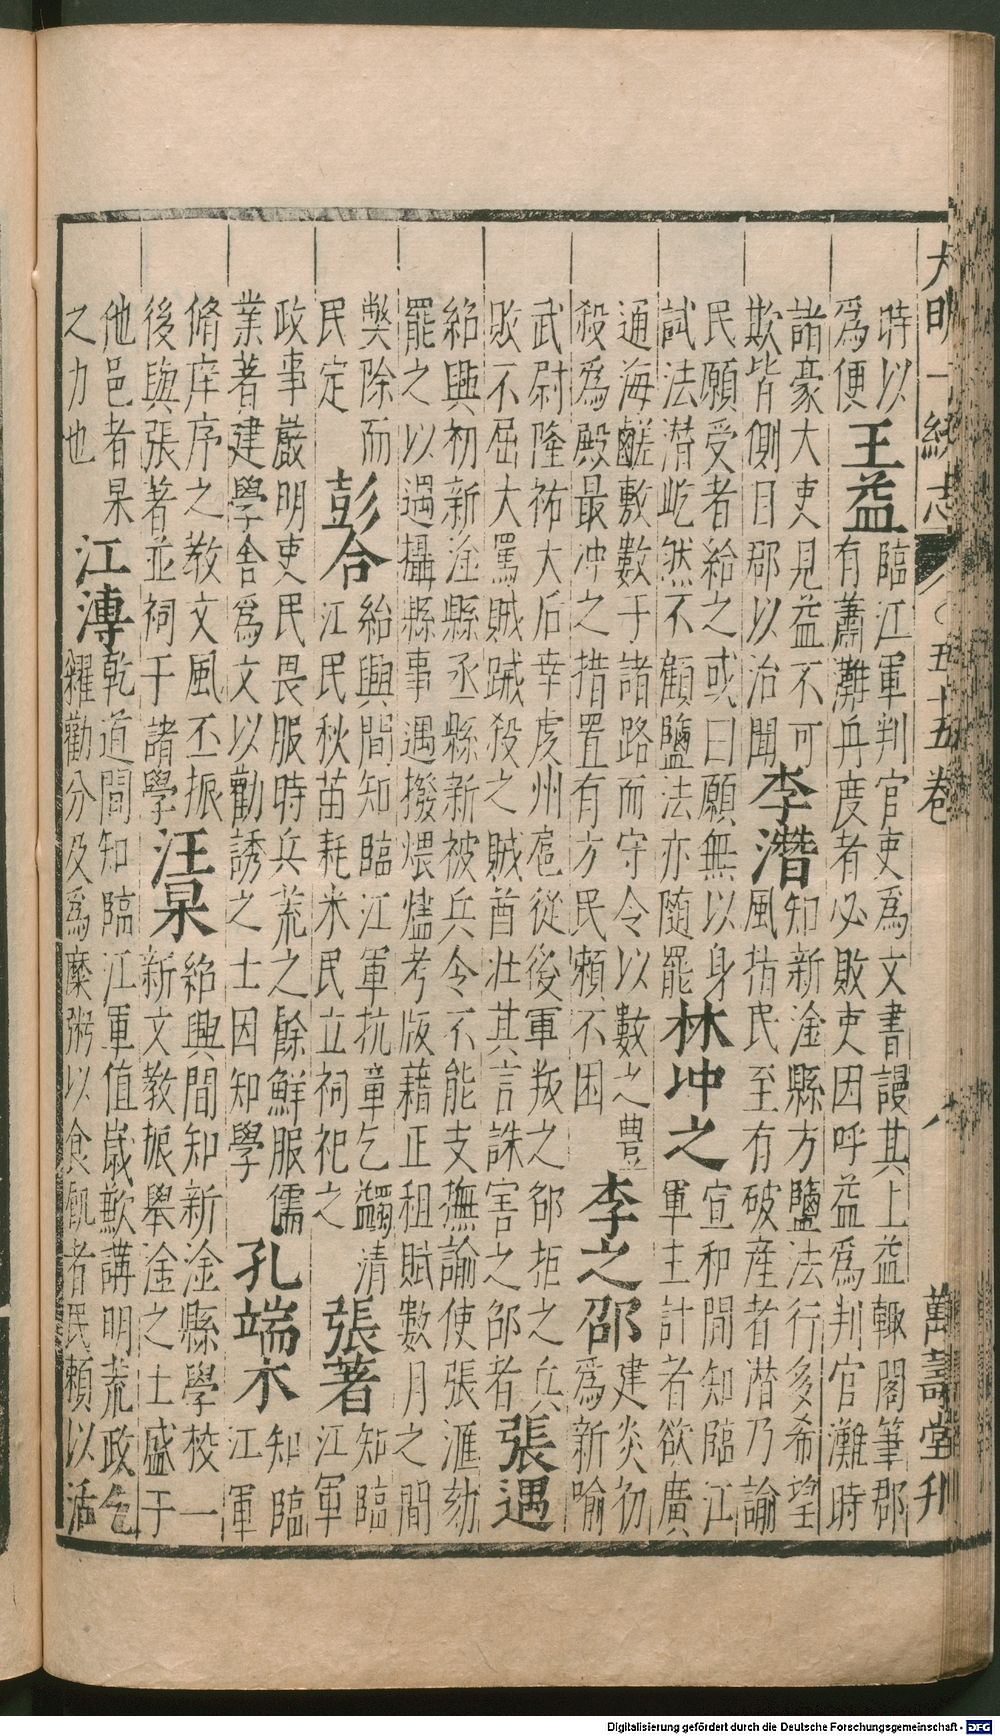 大明一統志 五十五卷 八 萬壽堂刋
時以
為便
王益
臨江軍判官吏為文書謾其上益輙閣筆郡
有蕭灘兵度者必敗吏因呼益為判官灘時
諸豪大吏見益不可
欺皆側目郡以治聞
李潛
知新淦縣方鹽法行多希望
風指民至有破產者潛乃諭
民願受者給之或曰願無以身
試法潛屹然不顧鹽法亦隨罷
林冲之
宣和間知臨江
軍主計者欲廣
通海鹺敷數于諸路而守令以數之豊
殺為殿最冲之措置有方民賴不困
李之邵
建炎初
為新喻
武尉隆祐大后幸虔州扈從後軍叛之邵拒之兵
敗不屈大罵賊賊殺之賊酋壯其言誅害之邵者
張遇
紹興初新淦縣丞縣新被兵令不能支撫諭使張滙劾
罷之以遇攝縣事遇撥煨燼考版藉正租賦數月之間
獘除而
民定
彭合
紹興間知臨江軍抗章乞蠲清
江民秋苗耗米民立祠祀之
張著
知臨
江軍
政事嚴明吏民畏服時兵荒之餘鮮服儒
業著建學舍為文以勸誘之士因知學
孔端木
知臨
江軍
脩庠序之教文風丕振
後與張著並祠于諸學
汪杲
紹興間知新淦縣學校一
新文教振舉淦之士盛于
他邑者杲
之力也
江溥
乾道間知臨江軍值歲歉講明荒政乞
糴勸分及為糜粥以食飢者民賴以活
Digitalisierung gefördert durch die Deutsche Forschungsgemeinschaft - DFG